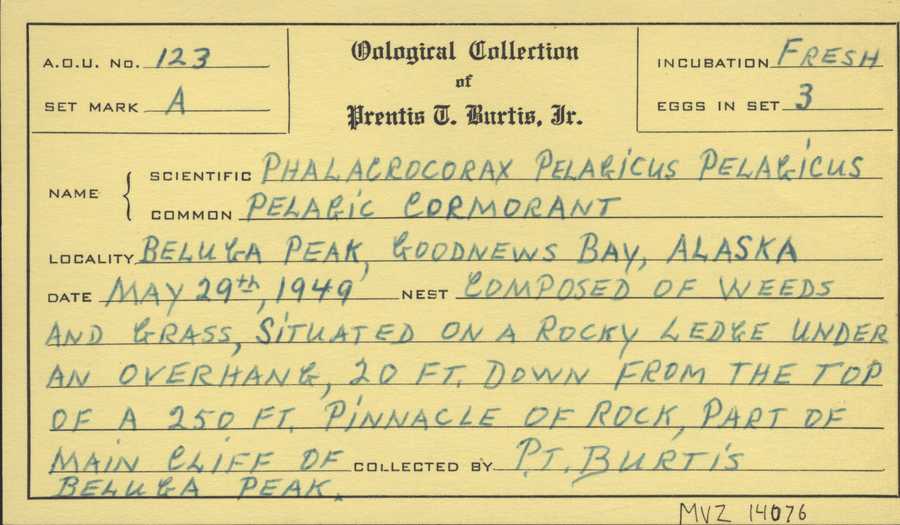 A.O.U. No. 123
SET MARK A
Oological Collection
of
Prentis T. Burtis, Jr.
INCUBATION FRESH
EGGS IN SET 3
NAME
SCIENTIFIC PHALACROCORAX PELAGICUS PELAGICUS
COMMON PELAGIC CORMORANT
LOCALITY BELUGA PEAK, GOODNEWS BAY, ALASKA
DATE MAY 29th, 1949 NEST COMPOSED OF WEEDS
AND GRASS, SITUATED ON A ROCKY LEDGE UNDER
AN OVERHANG, 20 FT. DOWN FROM THE TOP
OF A 250 FT. PINNACLE OF ROCK, PART OF
MAIN CLIFF OF COLLECTED BY P.T. BURTIS
BELUGA PEAK.
MVZ 14076